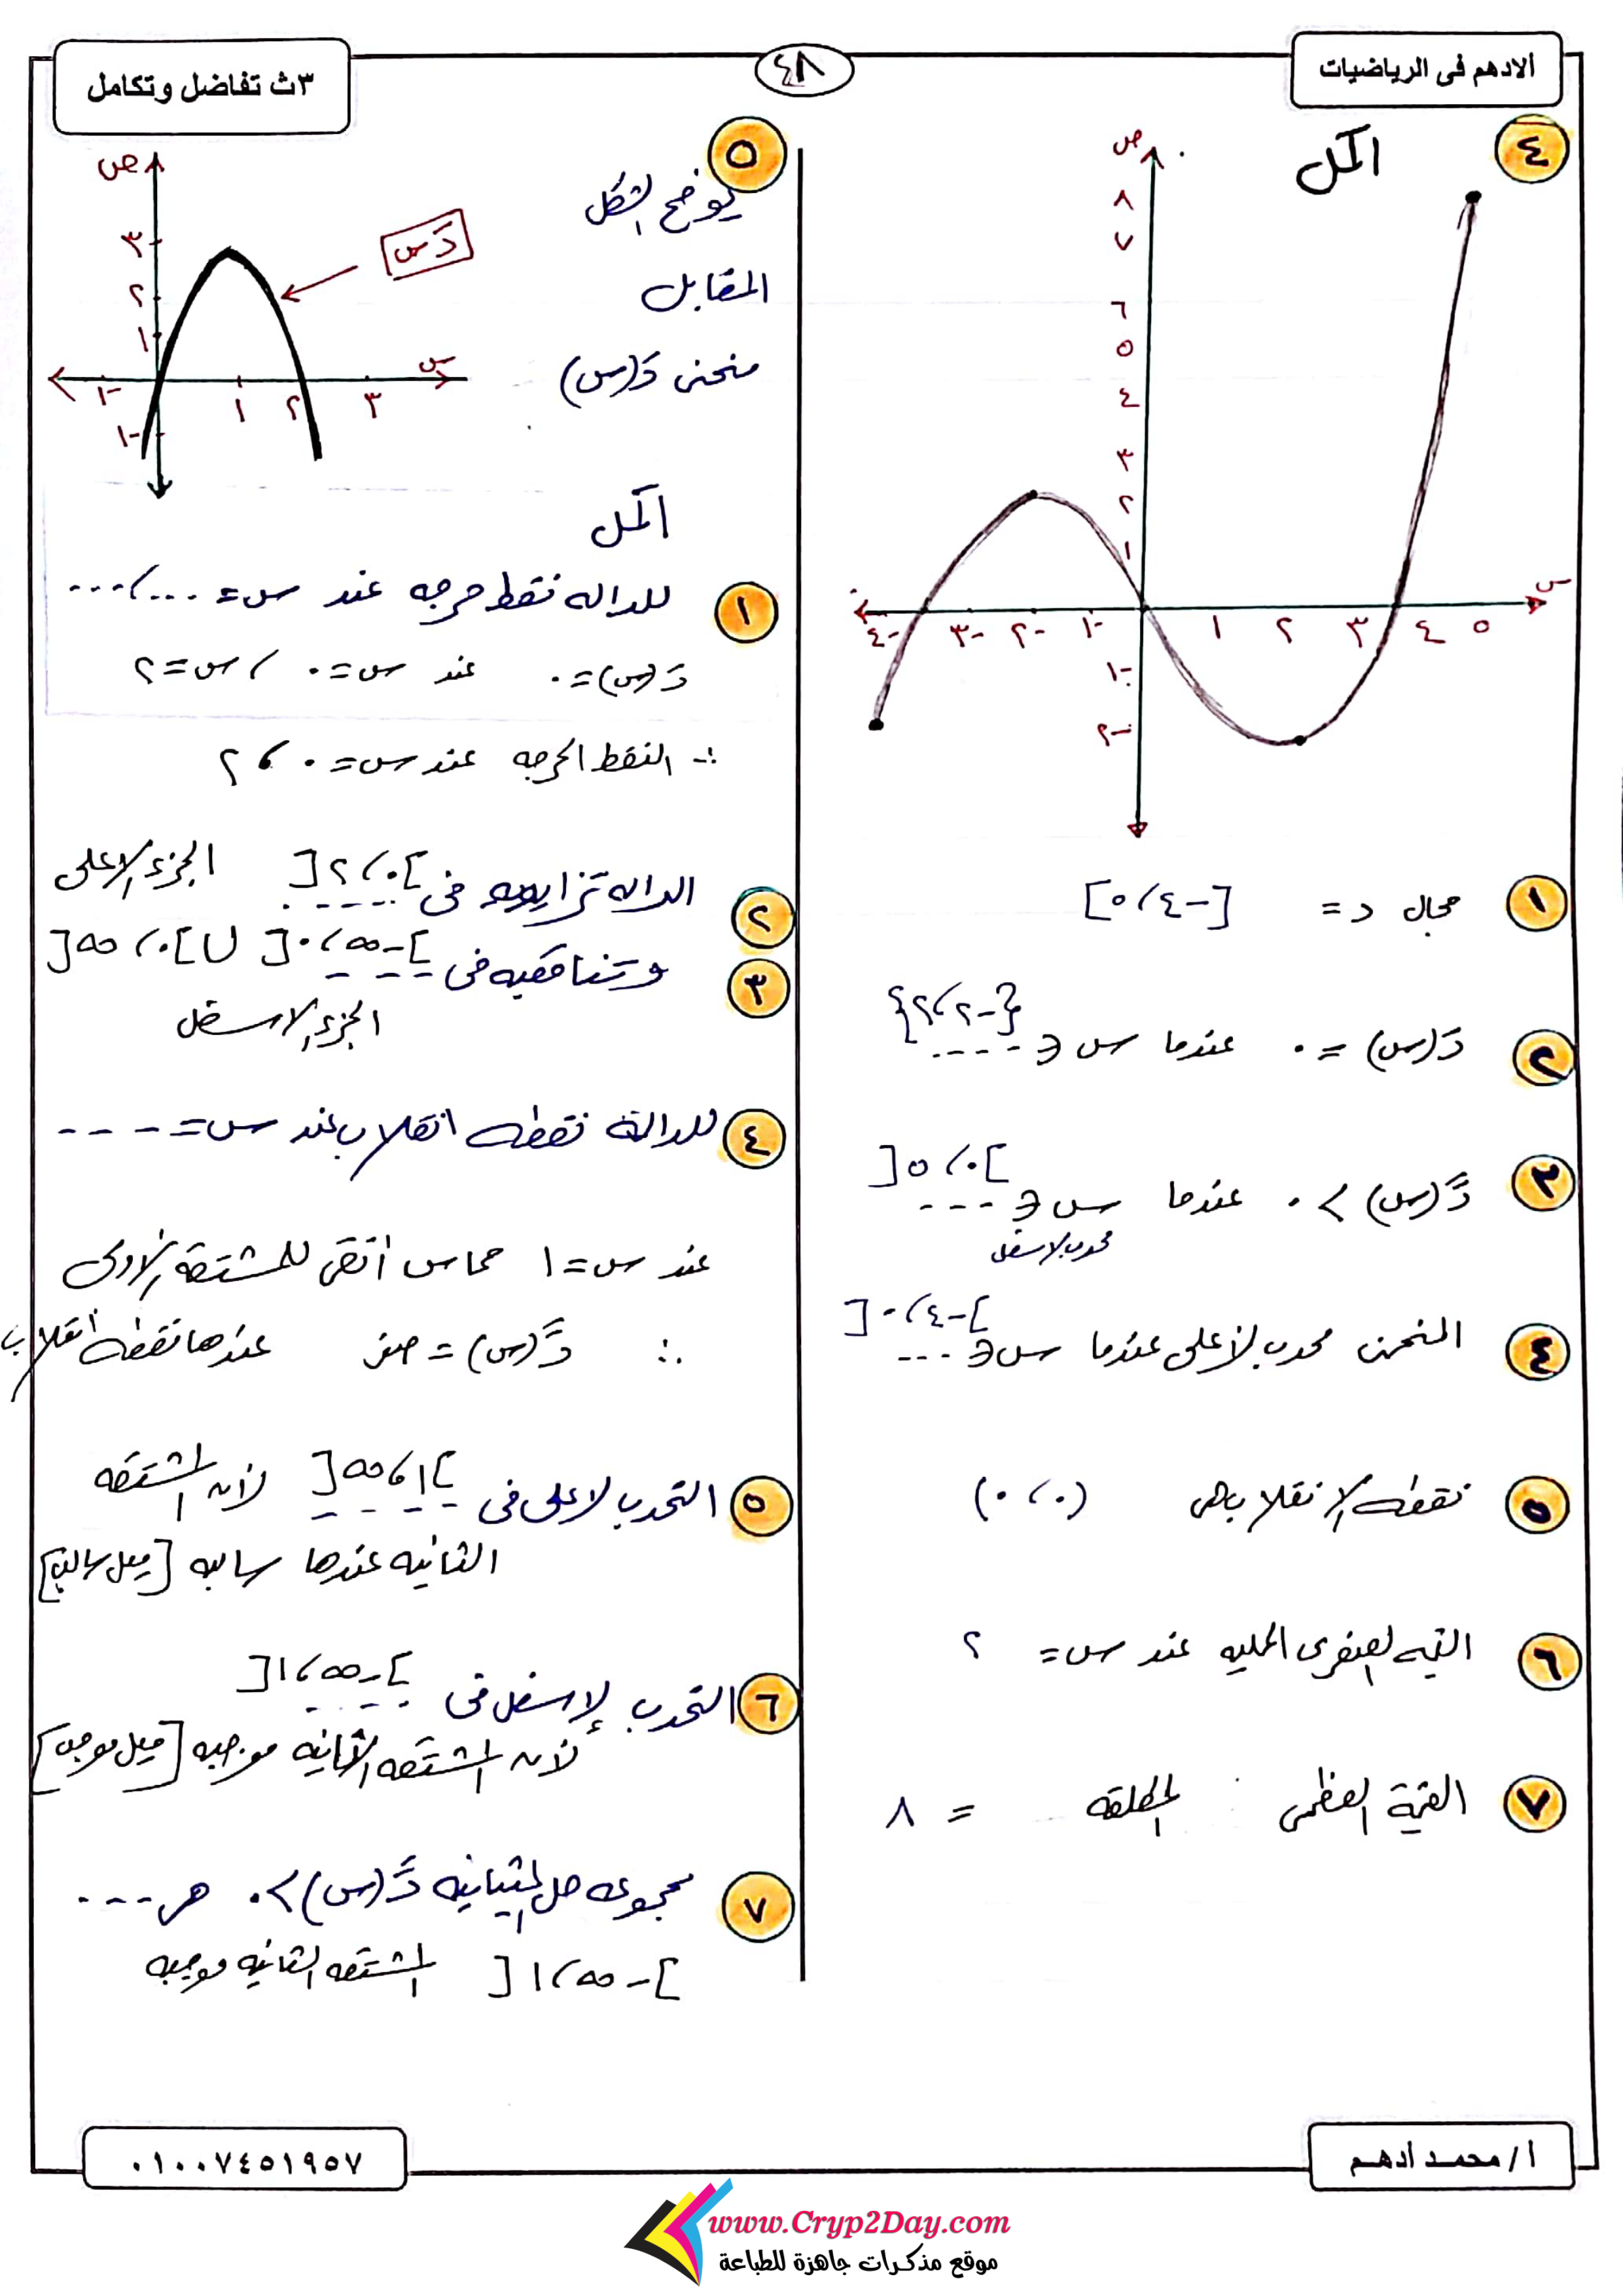 الادهم فى الرياضيات
٤٨
٣ث تفاضل وتكامل
٤ أكمل
ص
٨
٧
٦
٥
٤
٣
٢
١
س
-٤ -٣ -٢ -١ ١ ٢ ٣ ٤ ٥
-١
-٢
١ مجال د = [-٤، ٥]
٢ دَ(س) = ٠ عندما س ∈ {-٢، ٢}
٣ دً(س) > ٠ عندما س ∈ ]٠، ٥[
محدب لاسفل
٤ المنحنى محدب لأعلى عندما س ∈ ]-٤، ٠[
٥ نقطه الانقلاب هى (٠، ٠)
٦ القيمه الصغرى المحليه عند س = ٢
٧ القيمة العظمى المطلقه = ٨
٥ يوضح الشكل
المقابل
منحنى دَ(س)
ص
٣
٢
١
دَس
س
-١ ١ ٢ ٣
-١
أكمل
١ للداله نقط حرجه عند س = ...،...
دَ(س) = ٠ عند س = ٠ ، س = ٢
∴ النقط الحرجه عند س = ٠ ، ٢
٢ الداله تزايديه فى ]٠، ٢[ الجزء الاعلى
٣ وتناقصيه فى ]-∞، ٠[ ∪ ]٠، ∞[
الجزء الاسفل
٤ للدالة نقطه انقلاب عند س = ----
عند س = ١ مماس أفقى للمشتقة الاولى
∴ دً(س) = صفر عندها نقطه انقلاب
٥ التحدب لاعلى فى ]١، ∞[ لأن المشتقه
الثانيه عندها سالبه [ميل سالب]
٦ التحدب لإسفل فى ]-∞، ١[
لأن المشتقه الثانيه موجبه [ميل موجب]
٧ مجموعه حل المتباينه دً(س) > ٠ هى ----
]-∞، ١[ المشتقه الثانيه موجبه
أ/ محمد أدهم
٠١٠٠٧٤٥١٩٥٧
www.Cryp2Day.com
موقع مذكرات جاهزة للطباعة